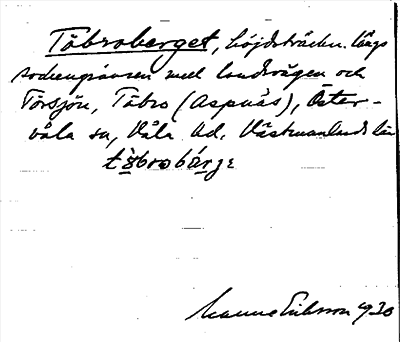 Tåbroberget, höjdsträckn. längs
sockengränsen med landsvägen och
Törsjön, Tåbro (Aspnäs), Öster-
våla sn, Våla hd, Västmanlands län
Manne Eriksson 1930